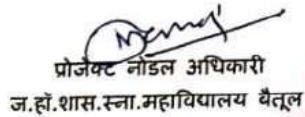 प्रोजेक्ट नोडल अधिकारी
ज.हॉ.शास.स्ना.महाविद्यालय बैतूल